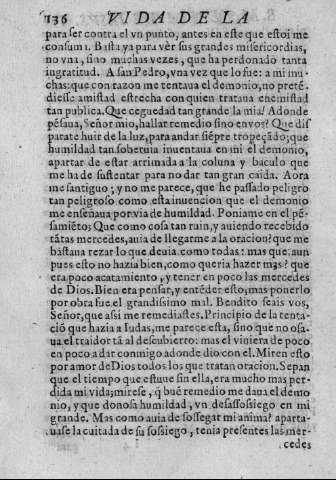 136 VIDA DE LA
para ser contra el vn punto, antes en este que estoi me
consumi. Basta ya para vèr sus grandes misericordias,
no vna, sino muchas vezes, que ha perdonado tanta
ingratitud. A san Pedro, vna vez que lo fue: a mi mu-
chas: que con razon me tentaua el demonio, no pretẽ-
diesse amistad estrecha con quien trataua enemistad
tan publica. Que ceguedad tan grande la mia! Adonde
pẽsaua, Señor mio, hallar remedio sino en vos? Que dis
parate huir de la luz, para andar siẽpre tropeçãdo; que
humildad tan soberuia inuentaua en mi el demonio,
apartar de estar arrimada a la coluna y baculo que
me ha de sustentar para no dar tan gran caida. Aora
me santiguo; y no me parece, que he passado peligro
tan peligroso como esta inuencion que el demonio
me enseñaua por via de humildad. Poniame en el pẽ-
samiẽto; Que como cosa tan ruin, y auiendo recebido
tãtas mercedes, auia de llegarme a la oracion? que me
bastaua rezar lo que deuia como todas: mas que aun
pues esto no hazia bien, como queria hazer mas? que
era poco acatamiento, y tener en poco las mercedes
de Dios. Bien era pensar, y entẽder esto, mas ponerlo
por obra fue el grandissimo mal. Bendito seais vos,
Señor, que assi me remediastes. Principio de la tenta-
ciõ que hazia a Iudas, me parece esta, sino que no osa-
ua el traidor tã al descubierto: mas el viniera de poco
en poco a dar conmigo adonde dio con el. Miren esto
por amor de Dios todos los que tratan oracion. Sepan
que el tiempo que estuue sin ella, era mucho mas per-
dida mi vida; mirese, q̃ buẽ remedio me daua el demo
nio, y que donosa humildad, vn desassossiego en mi
grande. Mas como auia de sossegar mi anima? aparta-
uase la cuitada de su sossiego, tenia presentes las mer-
cedes